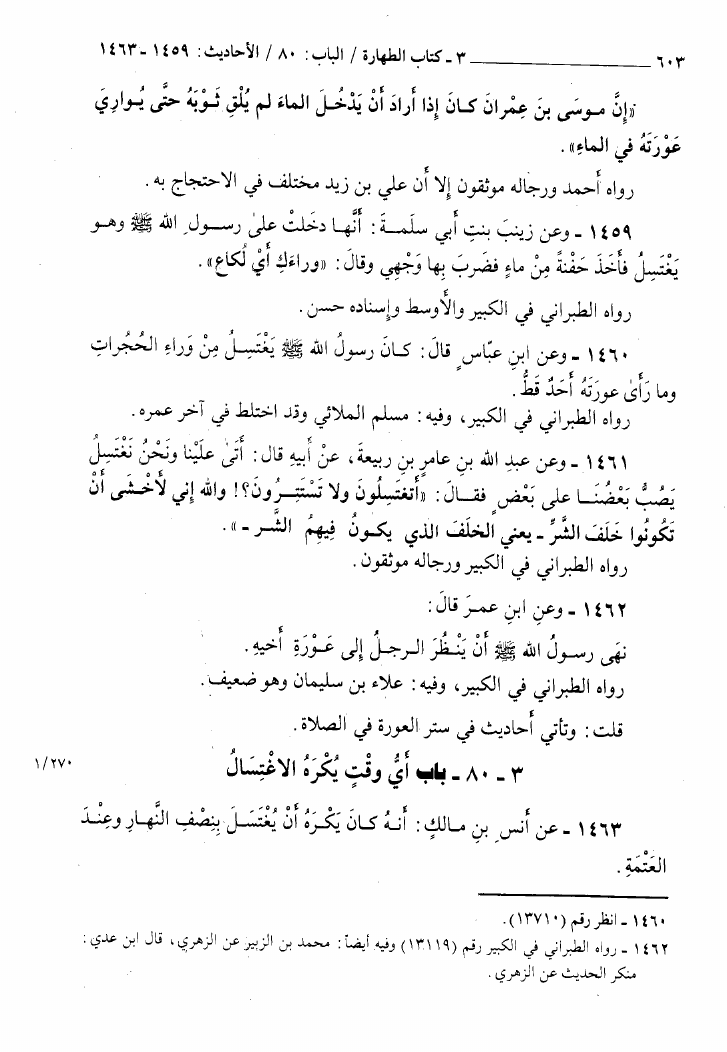 ٦٠٣ ــــــــــــــــــــ ٣ ـ كتاب الطهارة / الباب: ٨٠ / الأحاديث: ١٤٥٩ ـ ١٤٦٣
«إِنَّ مـوسَى بنَ عِمْرانَ كـانَ إِذا أَرادَ أَنْ يَدْخُـلَ المـاءَ لم يُلْقِ ثَـوْبَهُ حتَّى يُـوارِيَ
عَوْرَتَهُ في الماءِ».
رواه أحمد ورجاله موثقون إلا أن علي بن زيد مختلف في الاحتجاج به.
١٤٥٩ ـ وعن زينبَ بنتِ أبي سلَمـةَ: أَنَّهـا دخَلتْ على رسـولِ الله ﷺ وهـو
يَغْتَسِلُ فأَخَذَ حَفْنَةً مِنْ ماءٍ فضَربَ بها وَجْهِي وقالَ: «وراءَكِ أَيْ لُكاعِ».
رواه الطبراني في الكبير والأوسط وإسناده حسن.
١٤٦٠ ـ وعن ابنِ عبّاسٍ قالَ: كـانَ رسولُ الله ﷺ يَغْتَسِلُ مِنْ وَراءِ الحُجُراتِ
وما رَأَىٰ عورَتَهُ أَحَدٌ قَطُّ.
رواه الطبراني في الكبير، وفيه: مسلم الملائي وقد اختلط في آخر عمره.
١٤٦١ ـ وعن عبدِ الله بنِ عامرِ بنِ ربيعةَ، عنْ أَبيهِ قال: أَتَىٰ علَيْنا ونَحْنُ نَغْتَسِلُ
يَصُبُّ بَعْضُنَـا على بَعْضٍ فقـالَ: «أَتغتَسِلُونَ ولا تَسْتَتِـرُونَ؟! والله إِني لأَخْـشَى أَنْ
تَكُونُوا خَلَفَ الشَّرِّ ـ يعني الخلَفَ الذي يكـونُ فيهِمُ الشَّـر ـ».
رواه الطبراني في الكبير ورجاله موثقون.
١٤٦٢ ـ وعنِ ابنِ عمـرَ قالَ:
نهَى رسـولُ الله ﷺ أَنْ يَنْـظُرَ الـرجـلُ إلى عَـوْرَةِ أَخيهِ.
رواه الطبراني في الكبير، وفيه: علاء بن سليمان وهو ضعيف.
قلت: وتأتي أحاديث في ستر العورة في الصلاة.
٣ ـ ٨٠ ـ باب أَيُّ وقْتٍ يُكْرَهُ الاغْتِسَالُ
١/٢٧٠
١٤٦٣ ـ عن أَنسِ بنِ مالكٍ: أَنـهُ كـانَ يَكْـرَهُ أَنْ يُغْتَسَـلَ بِنِصْفِ النَّهـارِ وعِنْـدَ
العَتْمَةِ.
١٤٦٠ ـ انظر رقم (١٣٧١٠).
١٤٦٢ ـ رواه الطبراني في الكبير رقم (١٣١١٩) وفيه أيضاً: محمد بن الزبير عن الزهري، قال ابن عدي:
منكر الحديث عن الزهري.